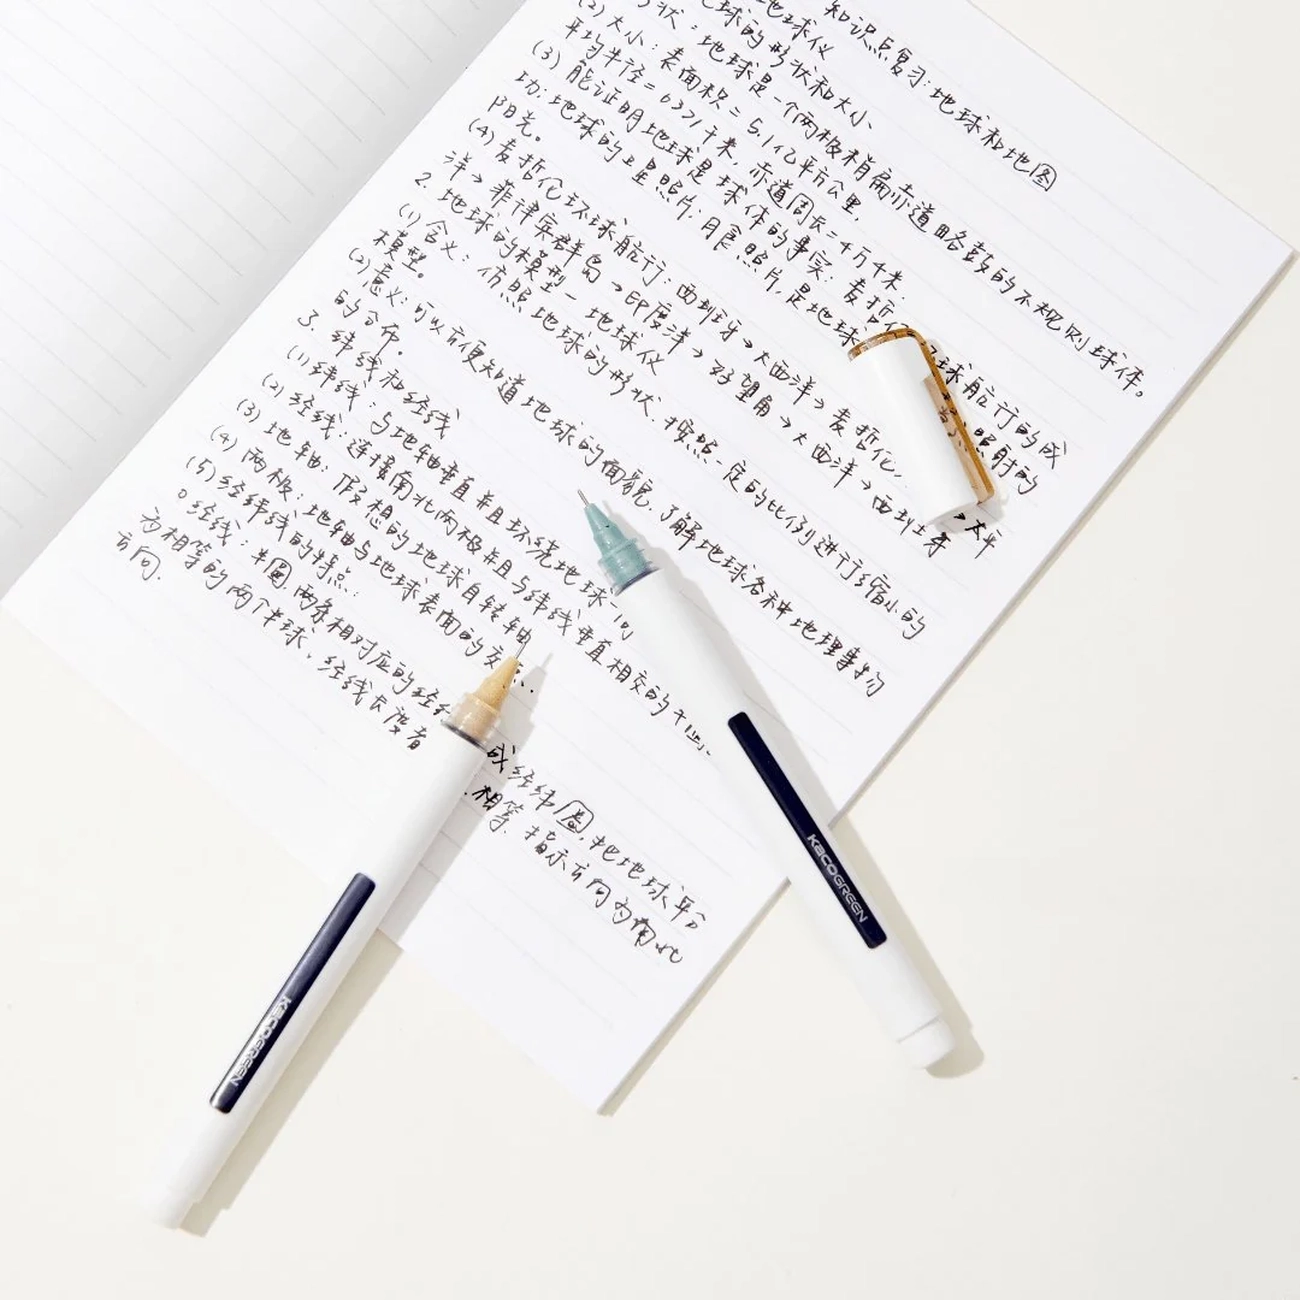 知识点复习:地球和地图
地球仪
球的形状和大小
状:地球是一个两极稍扁赤道略鼓的不规则球体。
(2)大小:表面积=5.1亿平方公里,
平均半径=6371千米,赤道周长=4万千米.
(3)能证明地球是球体的事实:麦哲 球航行的成
功:地球的卫星照片:月食照片,是地球 照射的
阳光。
(4)麦哲伦环球航行:西班牙→大西洋→麦哲伦 →太平
洋→菲律宾群岛→印度洋→好望角→大西洋→西班牙
2.地球的模型—地球仪
(1)含义:仿照地球的形状,按照一定的比例进行缩小的
模型。
(2)意义:可以方便知道地球的面貌,了解地球各种地理事物
的分布。
3.纬线和经线
(1)纬线:与地轴垂直并且环绕地球一
(2)经线:连接南北两极并且与纬线垂直相交的
(3)地轴:假想的地球自转轴
(4)两极:地轴与地球表面的交
(5)经纬线的特点:
经线:半圆,两条相对应的经 成经纬圈,把地球平分
为相等的两个半球,经线长度 相等.指示方向为南北
方向.
KACOGREEN
KACOGREEN